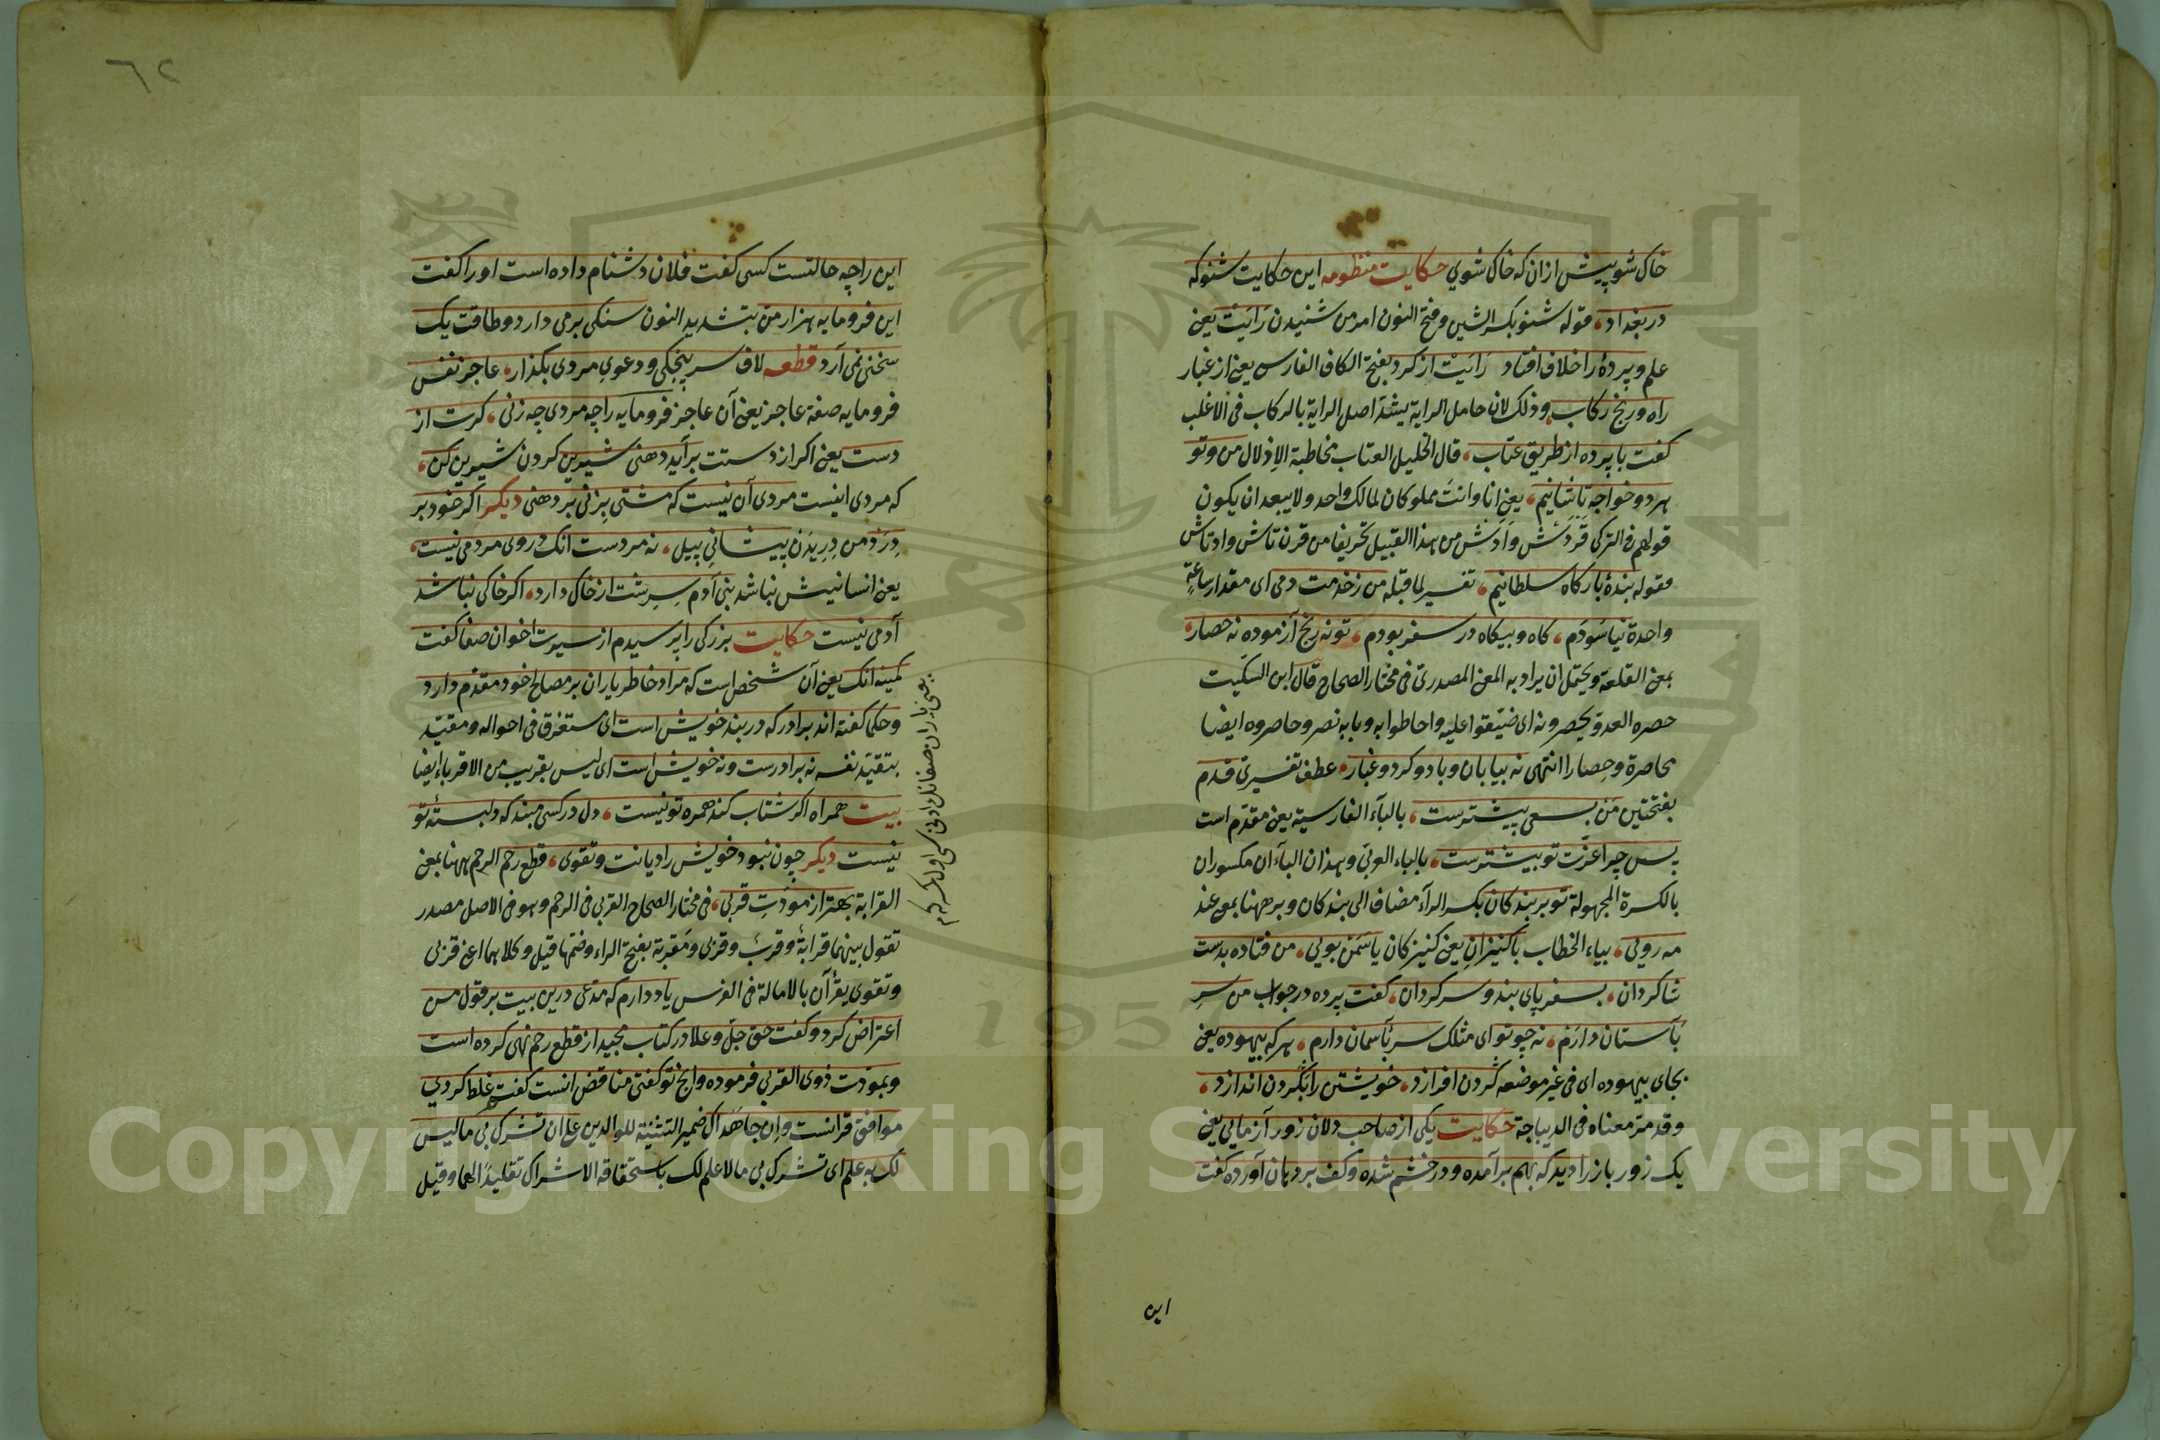 خاک شو پیش ازان که خاک شوی حکایت منظومه این حکایت شنو که
در بغداد، قوله شنو بکسر الشین وفتح النون امر من شنیدن رَایَت یعنی
علم و پردهٔ را خلاف افتاد رَایَت از کرد بفتح الکاف الفارسی یعنی از غبار
راه و رنج رکاب، وذلک لان حامل الرایة یشد اصل الرایة بالرکاب فی الاغلب
کفت با پرده از طریق عتاب، قال الخلیل العتاب مخاطبة الاذلال من و تو
هر دو خواجه تاشانیم، یعنی انا وانت مملوکان لمالک واحد ولا یبعد ان یکون
قولهم فی الترکی قَرْدَش واَدَش من هذا القبیل تحریفا من قرن تاش وادتاش
مقوله بندهٔ بارکاه سلطانیم، تفسیر لما قبله من زخدمت دمی ای مقدار ساعةٍ
واحدة نیاسَودَم، کاه و بیکاه در سفر بودم، تو نه رنج آزموده نه حصار،
بمعنی القلعة ویحتمل ان یراد به المعنی المصدری فی مختار الصحاح قال ابن السکیت
حصره العدو یحصرونه ای ضیّقوا علیه واحاطوا به وبابه نصر وحاصروه ایضا
محاصرة وحصارا انتهی نه بیابان و باد و کرد و غبار، عطف تفسیری قدم
بفتحتین من بسعی پیشترست، بالبآء الفارسیة یعنی مقدّم است
پس چرا عزّت تو بیشترست، بالباء العربی وهذان البآءان مکسوران
بالکسرة المجهولة تو بر بندکان بکسر الرآء مضاف الی بندکان وبر ههنا بمعنی عند
مه رویی، بیاء الخطاب با کنیزانِ یعنی کنیزکان یاسَمَن بویی، من فتاده بدست
شاکردان، بسفر پای بند و سر کردان، کفت پرده در جواب من سَرِ
بَآستان دارَم، نه چو تو ای مثلک سر بآسمان دارم، هر که بیهوده یعنی
بجای بیهوده ای فی غیر موضعه کردن افرازد، خویشتن را بکردن اندازد،
وقد مرّ معناه فی الدیباجة حکایت یکی از صاحب دلان زور آزمایی یعنی
یک زور باز را دید که بهم برآمده و در خشم شده و کف بر دهان آورده کفت
این
٦٢
این را چه حالتست کسی کفت فلان دشنام داده است او را کفت
این فرومایه هزار من بتشدید النون سنکی بر می دارد و طاقت یک
سخنی نمی آرد قطعه لاف سر پنجکی و دعوی مردی بکذار، عاجز نفس
فرومایه صفة عاجز یعنی آن عاجز فرومایه را چه مردی چه زنی، کرت از
دست یعنی اکر از دستت برآید دهنی شیرین کردن شیرین کن،
که مردی اینست مردی آن نیست که مشتی بزنی بر دهنی دیکر اکر خود بر
دِرَد من دِریدَن پیشانیِ پیل، نه مردست آنک در وی مردمی نیست،
یعنی انسانیتش نباشد بنی آدم سِرِشت از خاک دارد، اکر خاکی نباشد
آدمی نیست حکایت بزرکی را پرسیدم از سیرت اخوان صفا کفت
کمینه آنک یعنی آن شخص است که مراد خاطر یاران بر مصالح خود مقدّم دارد
و حکما کفته اند برادر که در بند خویش است ای مستغرق فی احواله ومقیّد
بتقیّد نفسه نه برادرست ونه خویش است ای لیس بقریب من الاقرباء ایضا
بیت همراه اکر شتاب کند همره تو نیست، دل در کسی مبند که دلبستهٔ تو
نیست دیکر چون نبود خویش را دیانت و تقوی، قطع رحم الرحم ههنا بمعنی
القرابة بهتر از مودّتِ قربی، فی مختار الصحاح القربی فی الرحم وهو فی الاصل مصدر
تقول بینهما قرابة وقرب وقربی ومقربة بفتح الراء وضمها قیل وکلاهما اعنی قربی
وتقوی یقرآن بالامالة فی الفرس یاد دارم که مدّعی درین بیت بر قول من
اعتراض کرد و کفت حق جلّ وعلا در کتاب مجید از قطع رحم نهی کرده است
و بمودّت ذوی القربی فرموده و آنچ تو کفتی مناقض آنست کفت غلط کردی
موافق قرآنست وان جاهداک ضمیر التثنیة للوالدین علی ان تشرک بی ما لیس
لک به علم ای تشرک بی ما لا علم لک باستحقاقه الاشراک تقلیدًا لهما وقیل
Copyright © King Saud University
1957